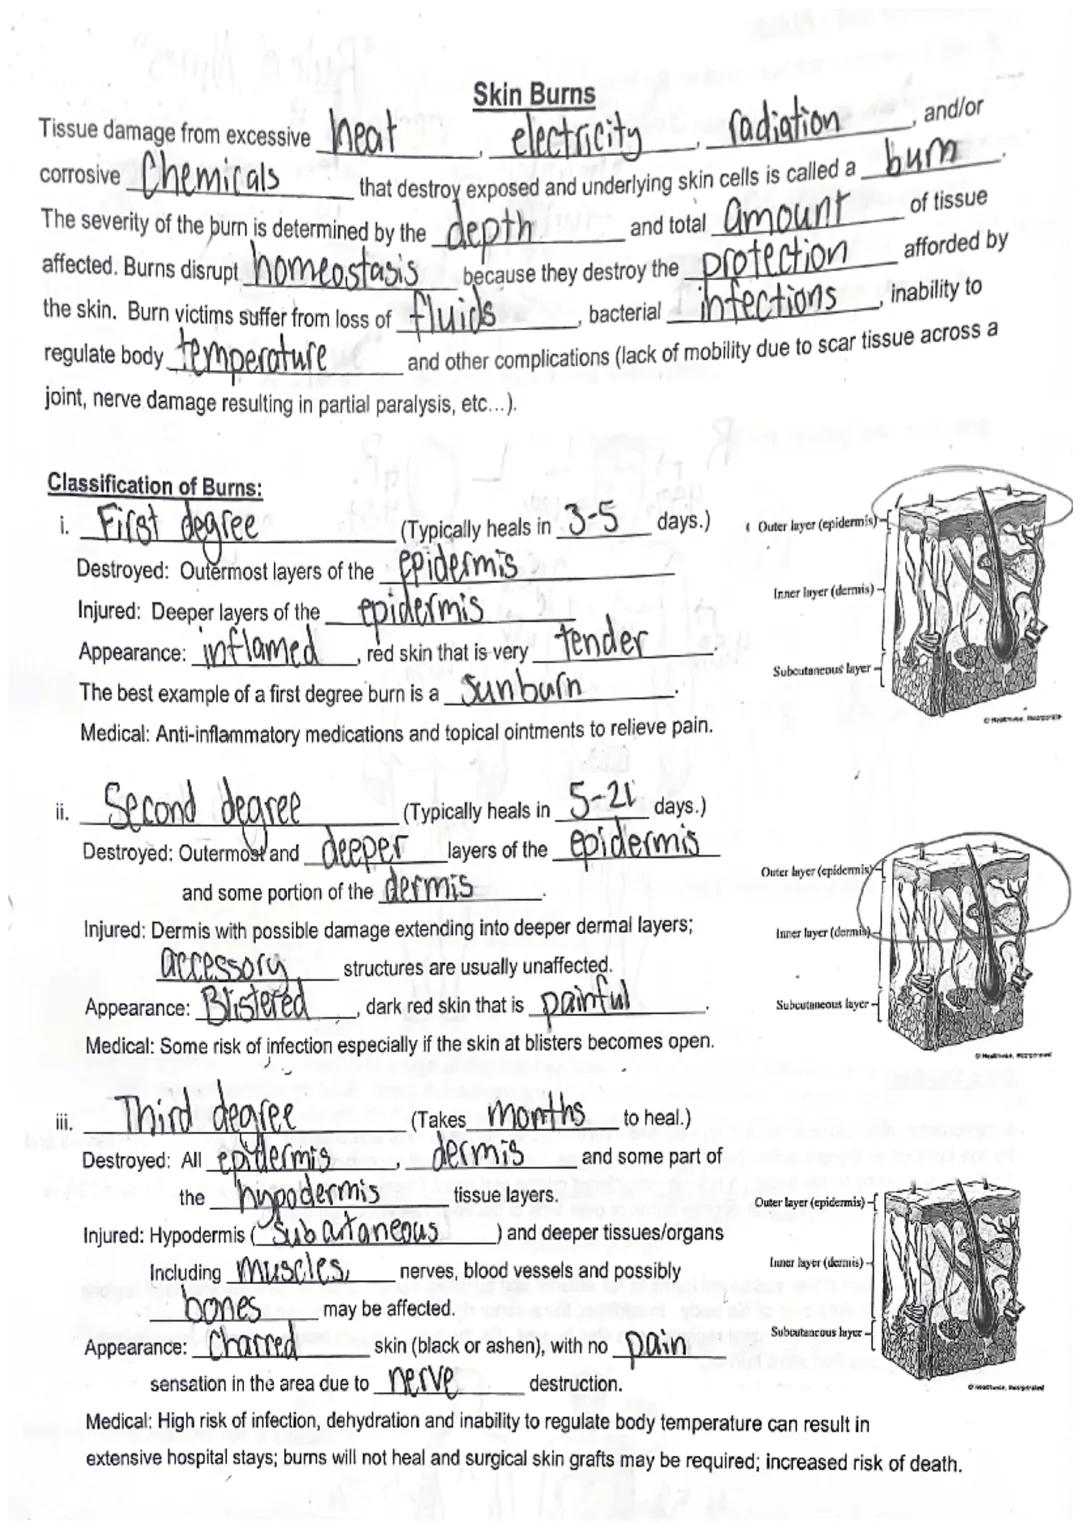 Skin Burns
Tissue damage from excessive heat, electricity, radiation, and/or
corrosive Chemicals that destroy exposed and underlying skin cells is called a burn.
The severity of the burn is determined by the depth and total amount of tissue
affected. Burns disrupt homeostasis because they destroy the protection afforded by
the skin. Burn victims suffer from loss of fluids, bacterial infections, inability to
regulate body temperature and other complications (lack of mobility due to scar tissue across a
joint, nerve damage resulting in partial paralysis, etc...).
Classification of Burns:
i. First degree (Typically heals in 3-5 days.)
Destroyed: Outermost layers of the epidermis
Injured: Deeper layers of the epidermis
Appearance: inflamed, red skin that is very tender.
The best example of a first degree burn is a Sunburn.
Medical: Anti-inflammatory medications and topical ointments to relieve pain.
Outer layer (epidermis)
Inner layer (dermis)
Subcutaneous layer
© Healthwise, Incorporated
ii. Second degree (Typically heals in 5-21 days.)
Destroyed: Outermost and deeper layers of the epidermis
and some portion of the dermis.
Injured: Dermis with possible damage extending into deeper dermal layers;
accessory structures are usually unaffected.
Appearance: Blistered, dark red skin that is painful.
Medical: Some risk of infection especially if the skin at blisters becomes open.
Outer layer (epidermis)
Inner layer (dermis)
Subcutaneous layer
© Healthwise, Incorporated
iii. Third degree (Takes months to heal.)
Destroyed: All epidermis, dermis and some part of
the hypodermis tissue layers.
Injured: Hypodermis (Subcutaneous) and deeper tissues/organs
Including muscles, nerves, blood vessels and possibly
bones may be affected.
Appearance: Charred skin (black or ashen), with no pain
sensation in the area due to nerve destruction.
Medical: High risk of infection, dehydration and inability to regulate body temperature can result in
extensive hospital stays; burns will not heal and surgical skin grafts may be required; increased risk of death.
Outer layer (epidermis)
Inner layer (dermis)
Subcutaneous layer
© Healthwise, Incorporated